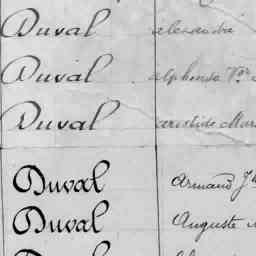 Duval alexandre
Duval alphonse Vor
Duval aristide Mar
Duval Armand J
Duval Auguste
Duval